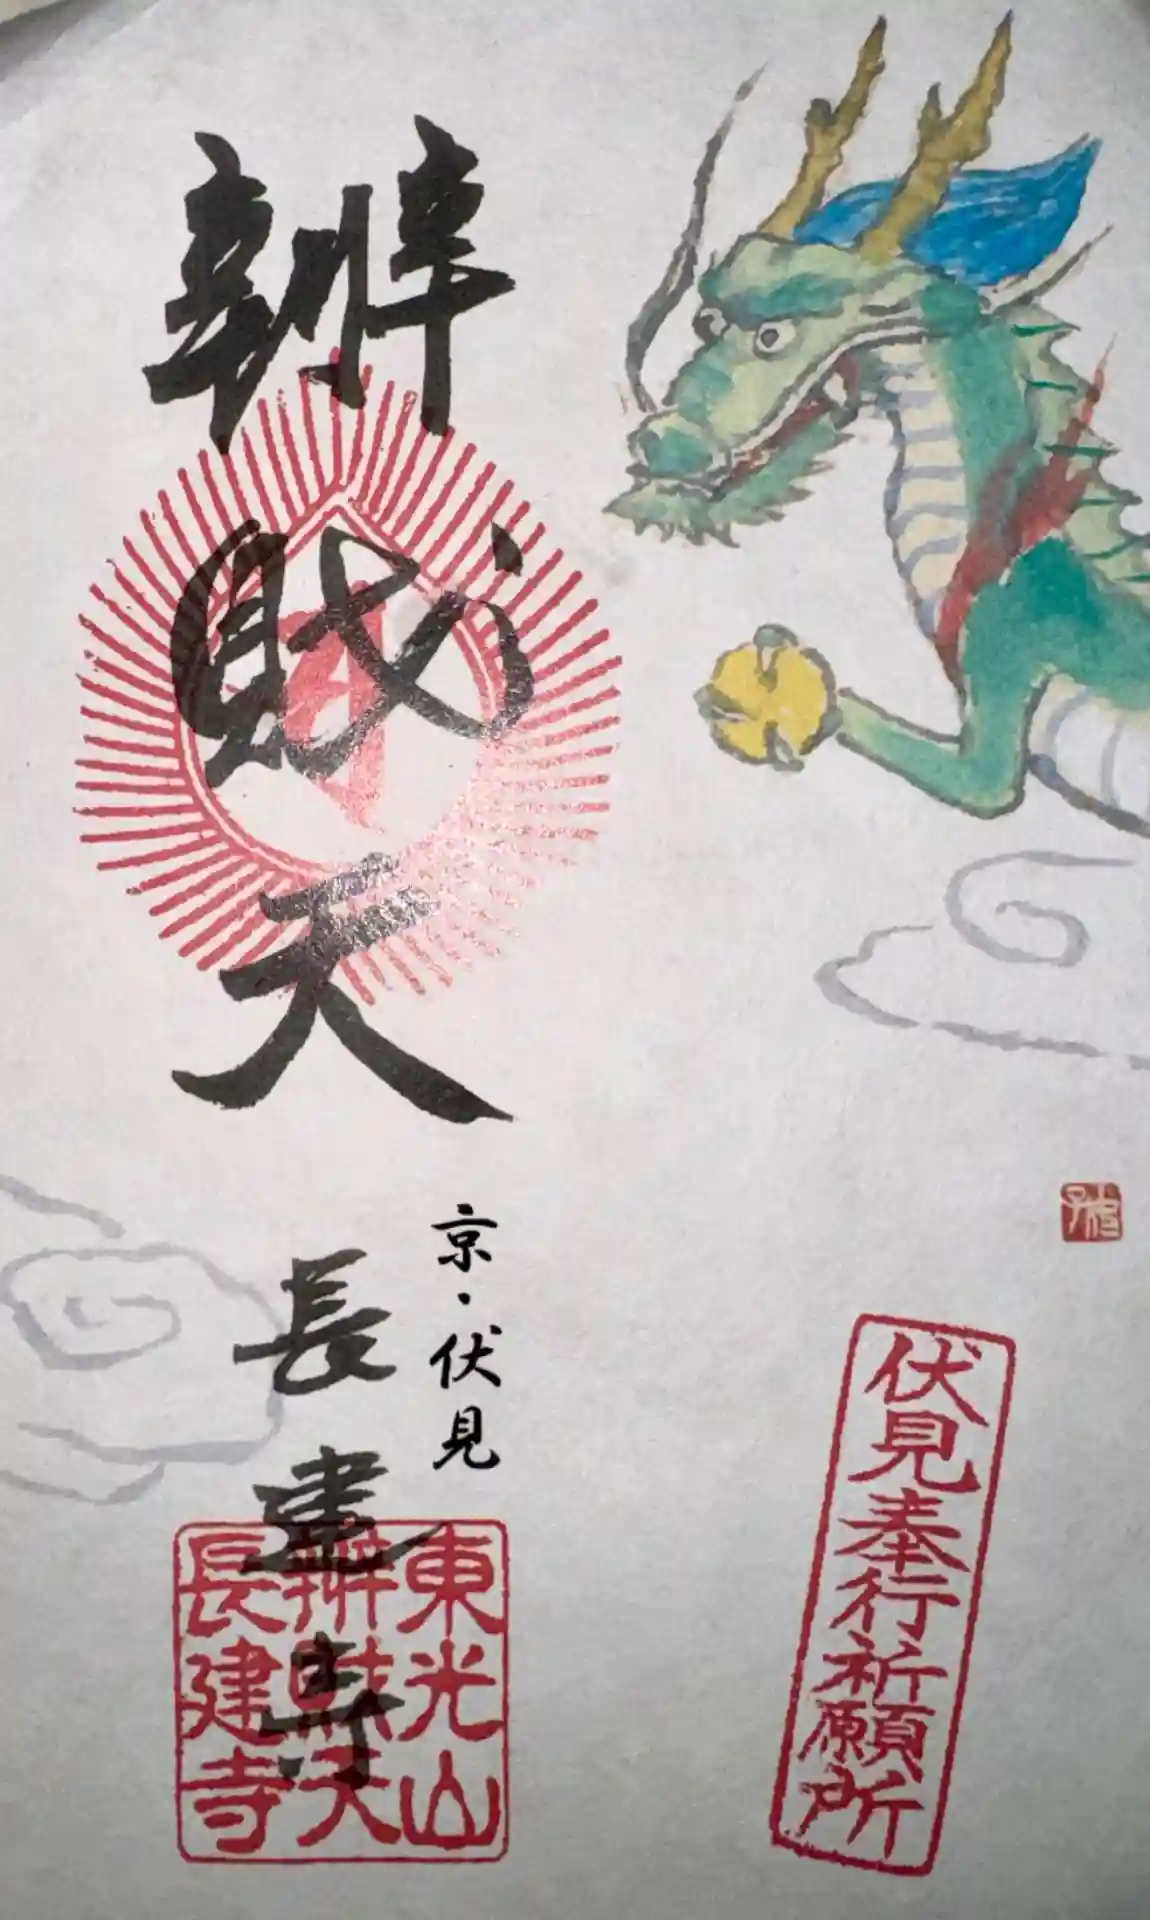 伏見奉行祈願所
京・伏見
辨財天
長建寺
東光山
辨財天
長建寺